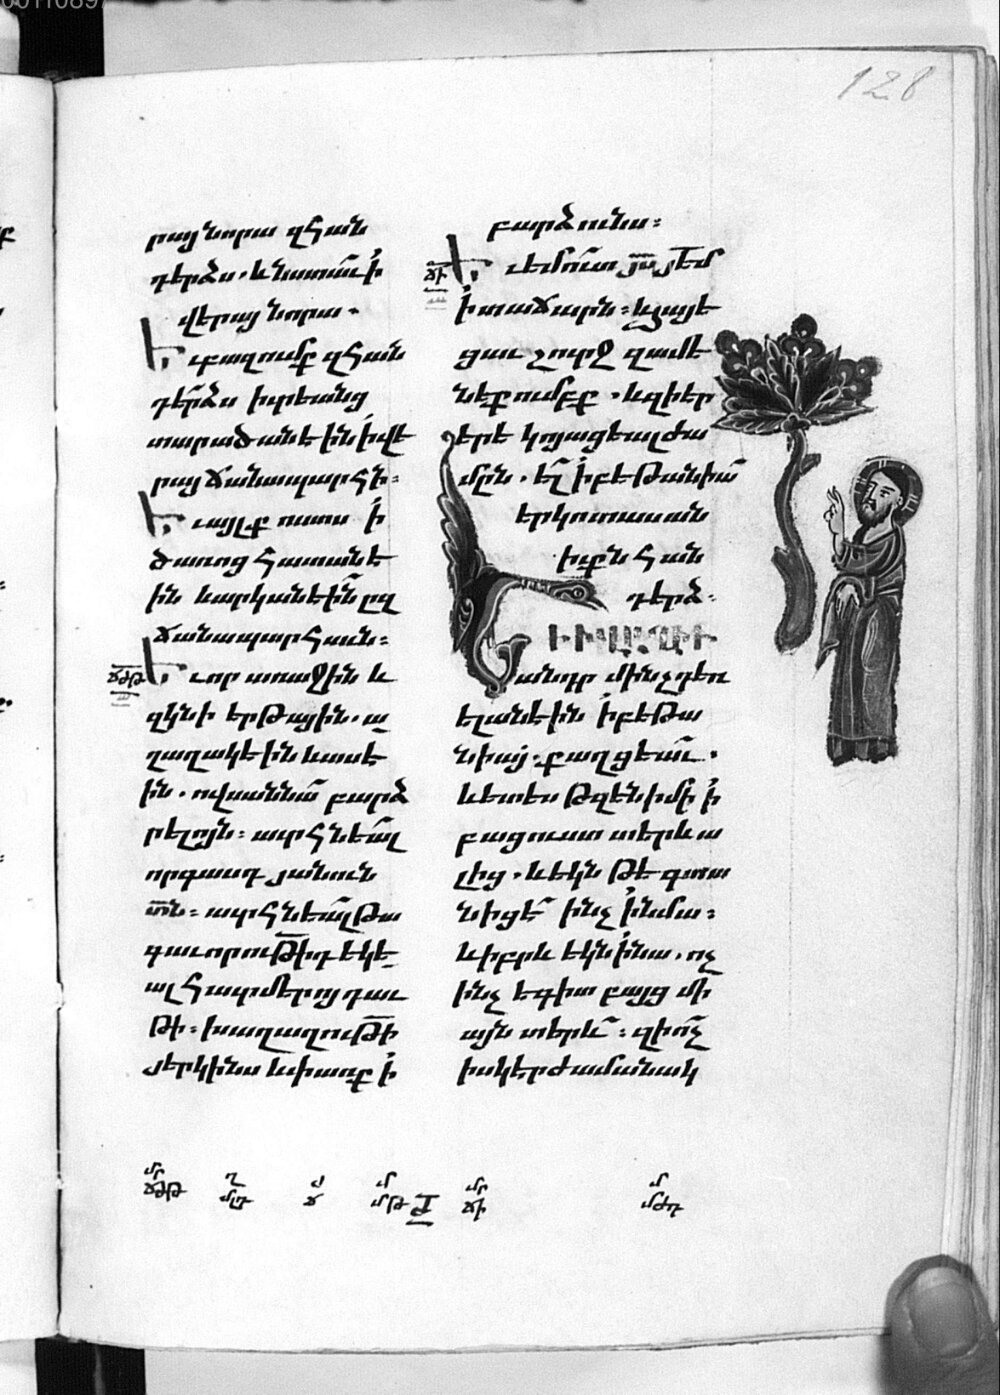 128
րայ նորա զհան
դերձս. և նստաւ ի
վերայ նորա.
Եւ բազումք զհան
դերձս իւրեանց
տարածանէին ի վե
րայ ճանապարհի:
Եւ այլք ոստս ի
ծառոց հատանէ
ին և արկանէին ըզ
ճանապարհաւն:
ՃԺԹ
Եւ որ առաջին և
զկնի երթային. ա
ղաղակէին և ասէ
ին. ովսաննա բարձ
րելոյն: աւրհնեալ
որ գասդ յանուն
տն: աւրհնեալ թա
գաւորութիդ եկե
ալ հաւր մերոյ դաւ
թի: խաղաղութի
յերկինս և փառք ի
բարձունս:
ՃԻ
Եւ եմուտ յս յեմ
ի տաճարն: և հայե
ցաւ շուրջ զամե
նեքումբք. և զի եր
երե կոյացեալ ժա
մըն. ել ի բեթանիա
երկոտասան
իւքն հան
դերձ.
Ի ՎԱՂԻՒ
անդր մինչդեռ
ելանէին ի բեթա
նիայ. քաղցեաւ.
և ետես թզենի մի ի
բացուստ տերևա
լից. և եկն թե գտա
նիցէ ինչ ի նմա:
և իբրև եկն ի նա. ոչ
ինչ եգիտ բայց մի
այն տերև: զի ոչ
իսկ էր ժամանակ
մր
ՃԺԹ
ՃԻ